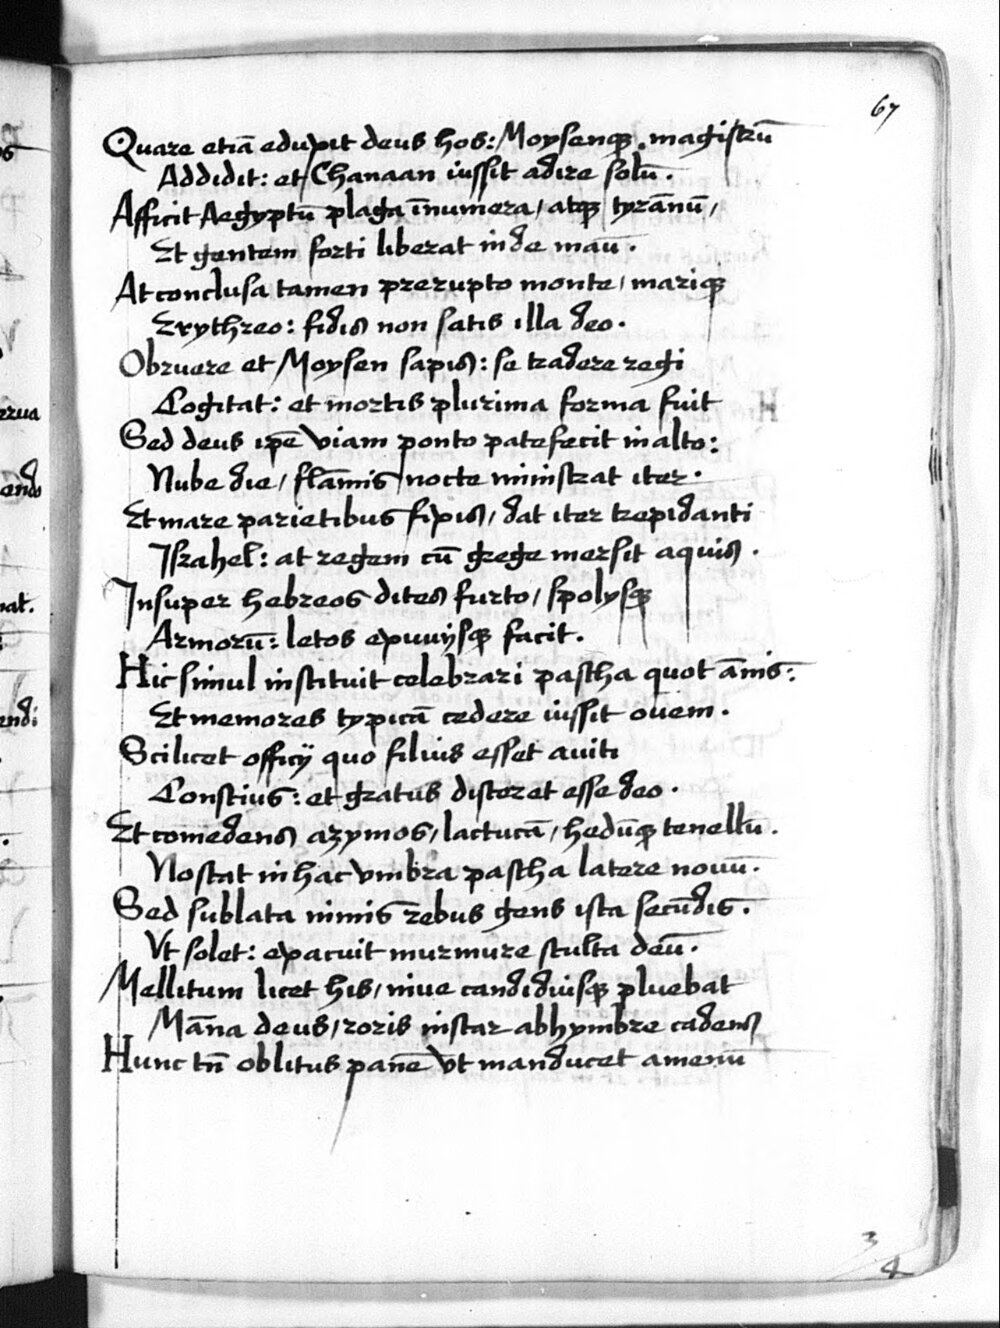 67
Quare etiā eduxit deus hos: Moysenqꝫ magistrū
Addidit: et Chanaan iussit adire solū.
Afficit Aegyptū plaga īnumera / atqꝫ tyrānū /
Et gentem forti liberat inde manū.
At conclusa tamen prerupto monte / mariqꝫ
Erythreo: fidis non satis illa deo.
Obruere et Moysen sapis: se tradere regi
Cogitat: et mortis plurima forma fuit
Sed deus ipe viam ponto patefecit in alto:
Nube die / flāmis nocte ministrat iter.
Et mare parietibus fixis / dat iter trepidanti
Israhel: at regem cū grege mersit aquis.
Insuper hebreos dites furto / spolysqꝫ
Armorū: letos exuuijsqꝫ facit.
Hic simul instituit celebrari pascha quot ānis:
Et memores typicā cedere iussit ouem.
Scilicet officij quo filius esset auiti
Conscius: et gratus disceret esse deo.
Et comedens azymos / lactucā / hedūqꝫ tenellū.
Noscat in hac vmbra pascha latere nouū.
Sed sublata nimis rebus gens ista secūdis.
Vt solet: exacuit murmure stulta deū.
Mellitum licet his / niue candidiusqꝫ pluebat
Māna deus / roris instar abhymbre cadens
Hunc tn̄ oblitus panē vt manducet amenū
3
4
rua
ends
nat.
endi